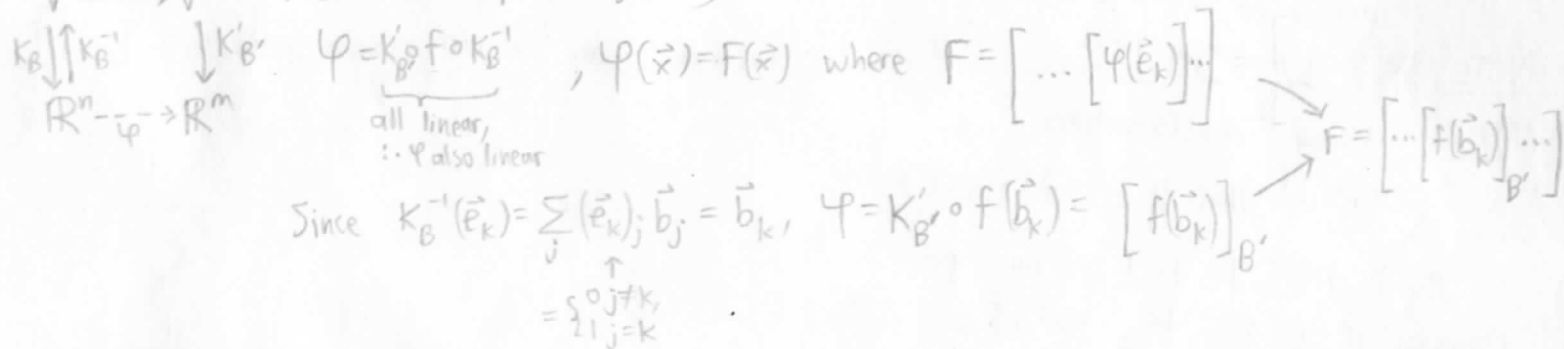 K_B ↓↑ K_B^{-1} ↓ K'_{B'} φ = K'_{B'} ∘ f ∘ K_B^{-1} , φ(x⃗) = F(x⃗) where F = [ ... [φ(e⃗_k)] ... ]
ℝ^n --φ--> ℝ^m
all linear,
∴ φ also linear
F = [ ... [f(b⃗_k)]_{B'} ... ]
Since K_B^{-1}(e⃗_k) = Σ_j (e⃗_k)_j b⃗_j = b⃗_k, φ = K'_{B'} ∘ f(b⃗_k) = [f(b⃗_k)]_{B'}
↑
= { 0 j≠k,
1 j=k